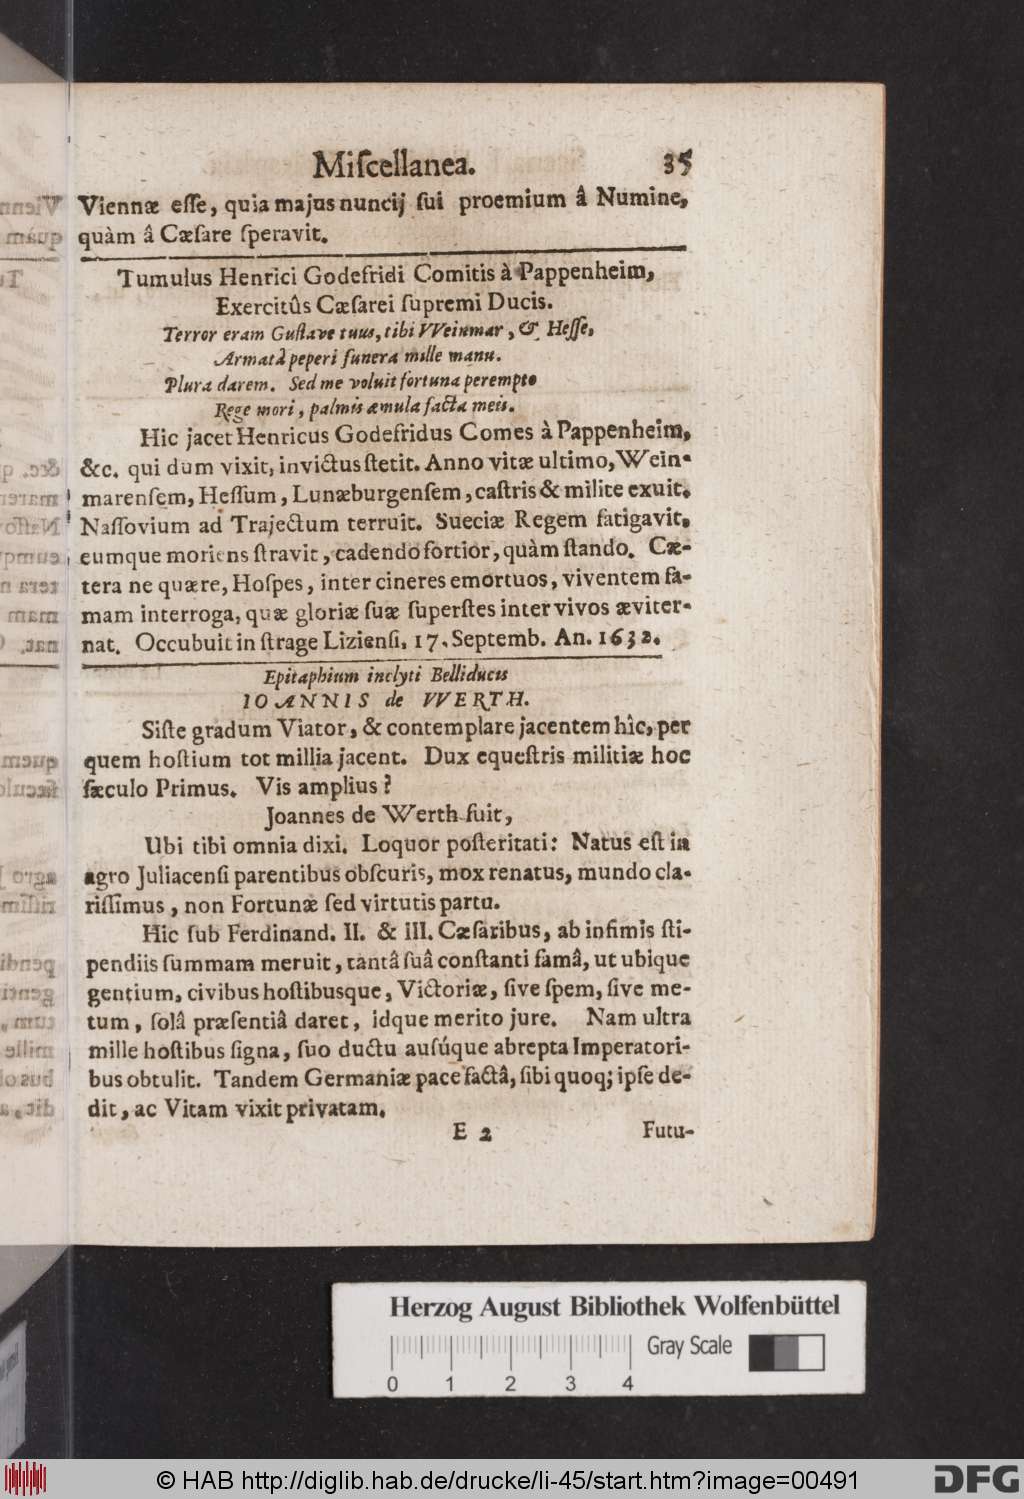 Miſcellanea. 35
Viennæ eſſe, quia majus nuncij ſui proemium â Numine,
quàm â Cæſare ſperavit.
Tumulus Henrici Godefridi Comitis à Pappenheim,
Exercitûs Cæſarei ſupremi Ducis.
Terror eram Guſtave tuus, tibi VVeinmar, & Heſſe,
Armatâ peperi funera mille manu.
Plura darem. Sed me voluit fortuna perempto
Rege mori, palmis æmula facta meis.
Hic jacet Henricus Godefridus Comes à Pappenheim,
&c. qui dum vixit, invictus ſtetit. Anno vitæ ultimo, Wein-
marenſem, Heſſum, Lunæburgenſem, caſtris & milite exuit.
Naſſovium ad Trajectum terruit. Sueciæ Regem fatigavit,
eumque moriens ſtravit, cadendo fortior, quàm ſtando. Cæ-
tera ne quære, Hoſpes, inter cineres emortuos, viventem fa-
mam interroga, quæ gloriæ ſuæ ſuperſtes inter vivos æviter-
nat. Occubuit in ſtrage Lizienſi, 17. Septemb. An. 1632.
Epitaphium inclyti Belliducis
IOANNIS de VVERTH.
Siſte gradum Viator, & contemplare jacentem hîc, per
quem hoſtium tot millia jacent. Dux equeſtris militiæ hoc
ſæculo Primus. Vis amplius?
Joannes de Werth fuit,
Ubi tibi omnia dixi. Loquor poſteritati: Natus eſt in
agro Juliacenſi parentibus obſcuris, mox renatus, mundo cla-
riſſimus, non Fortunæ ſed virtutis partu.
Hic ſub Ferdinand. II. & III. Cæſaribus, ab infimis ſti-
pendiis ſummam meruit, tantâ ſuâ conſtanti famâ, ut ubique
gentium, civibus hoſtibusque, Victoriæ, ſive ſpem, ſive me-
tum, ſolâ præſentiâ daret, idque merito jure. Nam ultra
mille hoſtibus ſigna, ſuo ductu auſúque abrepta Imperatori-
bus obtulit. Tandem Germaniæ pace factâ, ſibi quoq; ipſe de-
dit, ac Vitam vixit privatam.
E 2 Futu-
Herzog August Bibliothek Wolfenbüttel
Gray Scale
0 1 2 3 4
© HAB http://diglib.hab.de/drucke/li-45/start.htm?image=00491
DFG